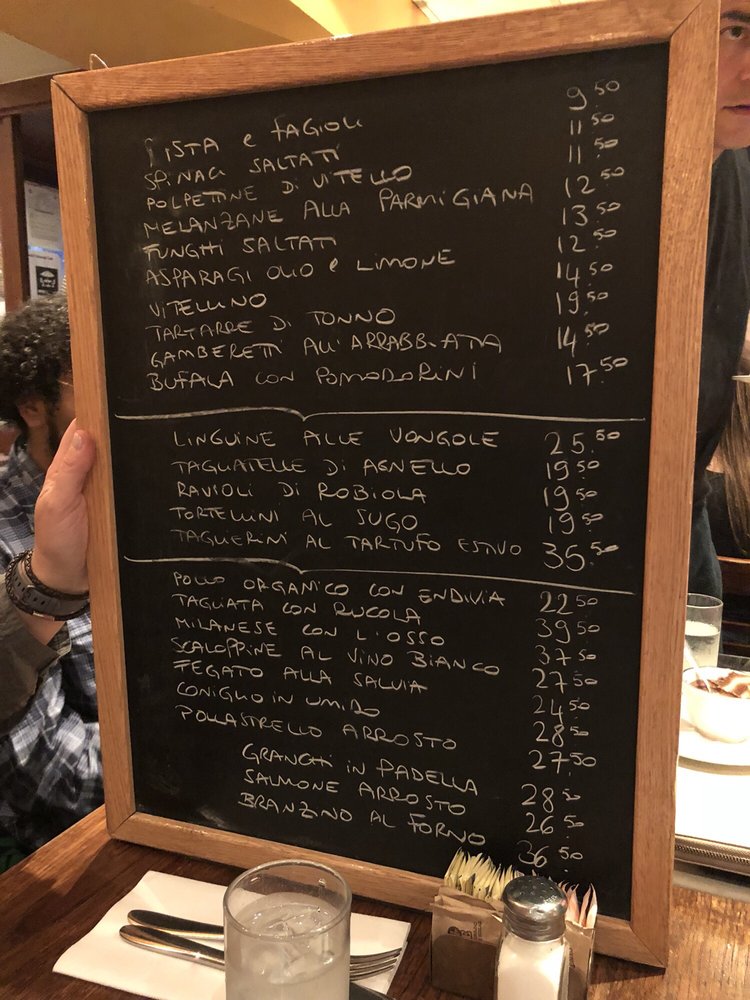 PASTA e FAGIOLI 9.50
SPINACI SALTATI 11.50
POLPETTINE DI VITELLO 11.50
MELANZANE ALLA PARMIGIANA 12.50
FUNGHI SALTATI 13.50
ASPARAGI OLIO e LIMONE 12.50
VITELLINO 14.50
TARTARRE DI TONNO 19.50
GAMBERETTI ALL'ARRABBIATA 14.50
BUFALA CON POMODORINI 17.50
LINGUINE ALLE VONGOLE 25.50
TAGLIATELLE DI AGNELLO 19.50
RAVIOLI DI ROBIOLA 19.50
TORTELLINI AL SUGO 19.50
TAGLIERINI AL TARTUFO ESTIVO 35.50
POLLO ORGANICO CON ENDIVIA 22.50
TAGLIATA CON RUCOLA 39.50
MILANESE CON L'OSSO 37.50
SCALOPPINE AL VINO BIANCO 27.50
FEGATO ALLA SALVIA 24.50
CONIGLIO IN UMIDO 28.50
POLLASTRELLO ARROSTO 27.50
GRANCHI IN PADELLA 28.50
SALMONE ARROSTO 26.50
BRANZINO AL FORNO 36.50